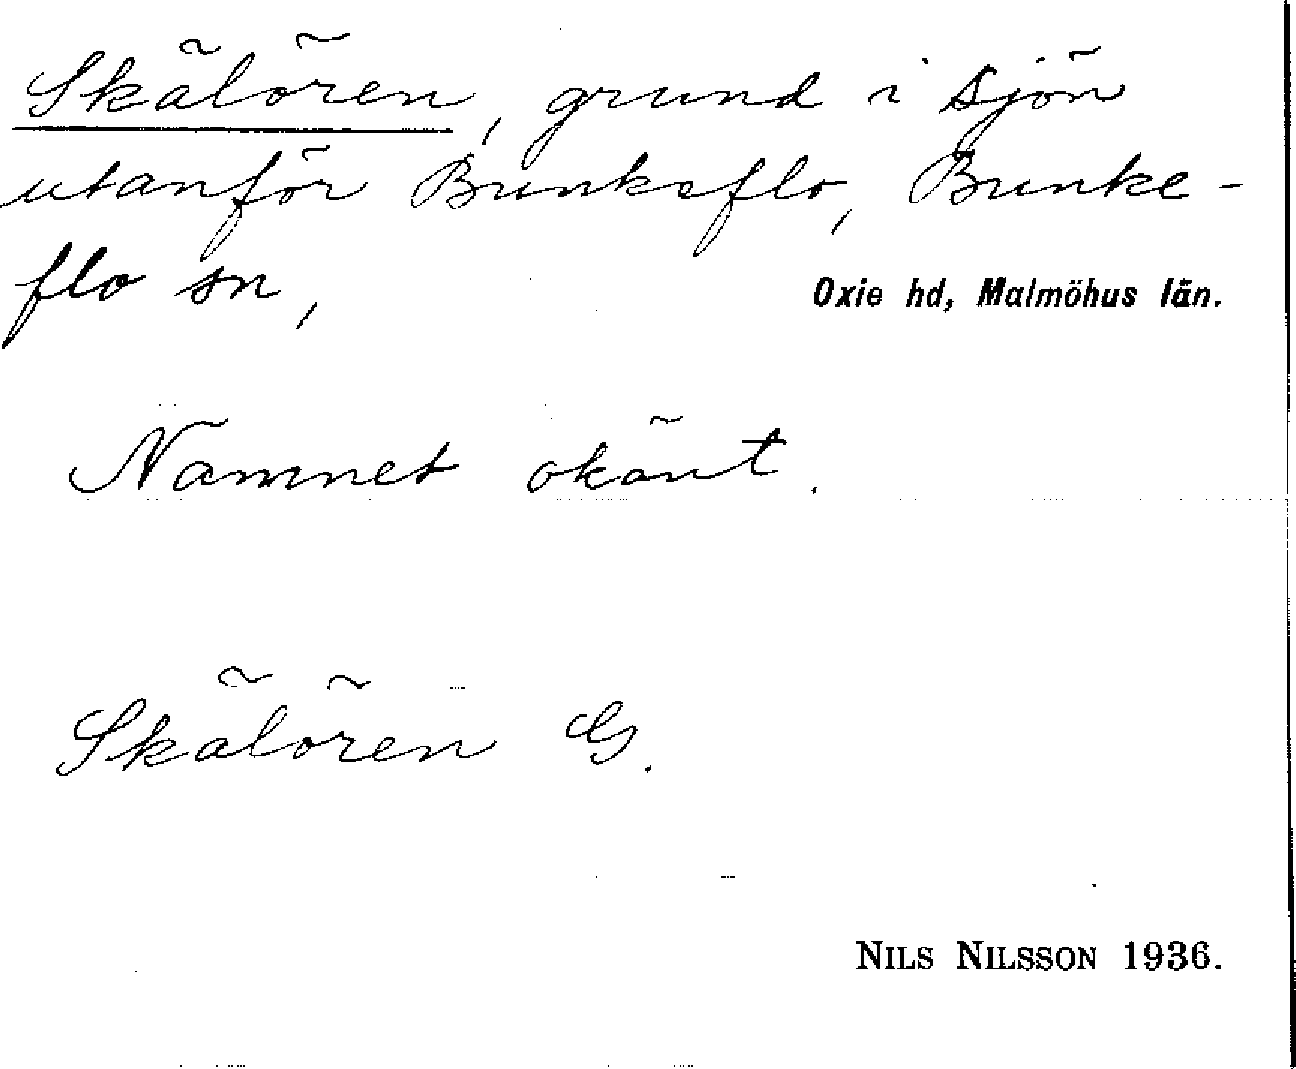 Skälören, grund i sjön
utanför Bunkeflo, Bunke-
flo sn,
Oxie hd, Malmöhus län.
Nämnet okänt.
Skälören G.
NILS NILSSON 1936.